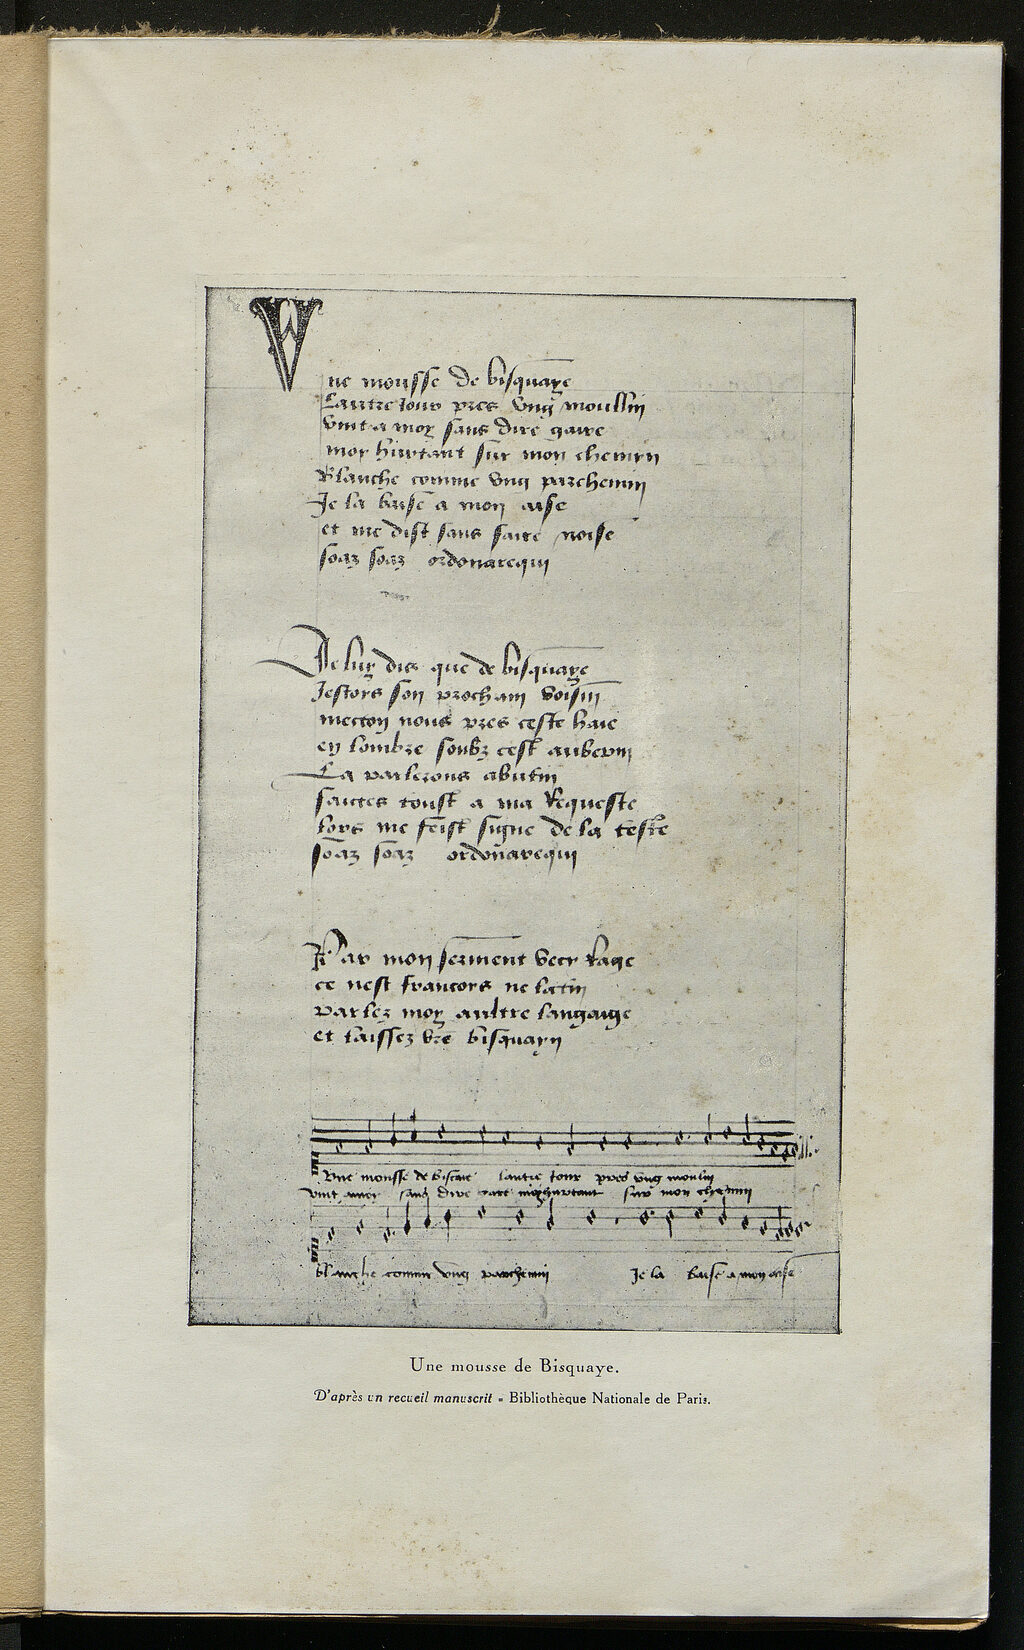 Vne mousse de bisquaye
Lautre iour pres vng moullin
vint a moy sans dire gaire
moy hurtant sur mon chemin
Blanche comme vng parchemin
Je la baise a mon aise
et me dist sans faire noise
soaz soaz ordonarequi
Je luy dis que de bisquaye
Jestois son prochain voisin
mecton nous pres ceste haie
en lombre soubz cest aubepin
La parlerons a butin
faictes toust a ma Requeste
lors me feist signe de la teste
soaz soaz ordonarequi
Par mon serment vecy Rage
ce nest francois ne latin
parlez moy aultre langaige
et laissez vre bisquayn
Vne mousse de biscaie lautre iour pres vng moulin
vint a moy sans dire gaire moy hurtant sur mon chemin
blanche comme vng parchemin Je la baise a mon aise
Une mousse de Bisquaye.
D'après un recueil manuscrit - Bibliothèque Nationale de Paris.